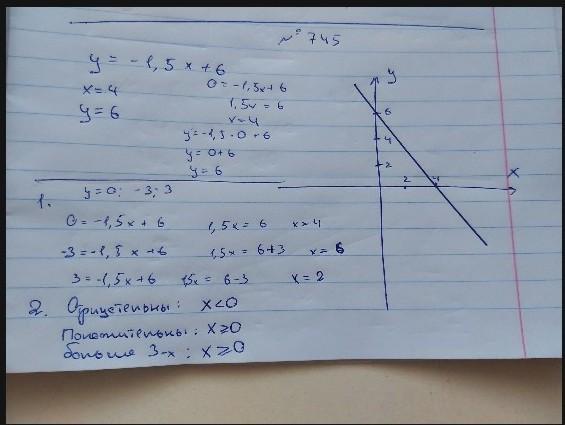 № 745
y = -1,5x+6
x=4
y=6
0=-1,5x+6
1,5x=6
x=4
y=-1,5·0+6
y=0+6
y=6
y
6
4
2
2
4
x
1. y=0; -3; 3
0=-1,5x+6 1,5x=6 x=4
-3=-1,5x+6 1,5x=6+3 x=6
3=-1,5x+6 1,5x=6-3 x=2
2. Отрицательны: x<0
Положительны: x≥0
больше 3-х: x≥0